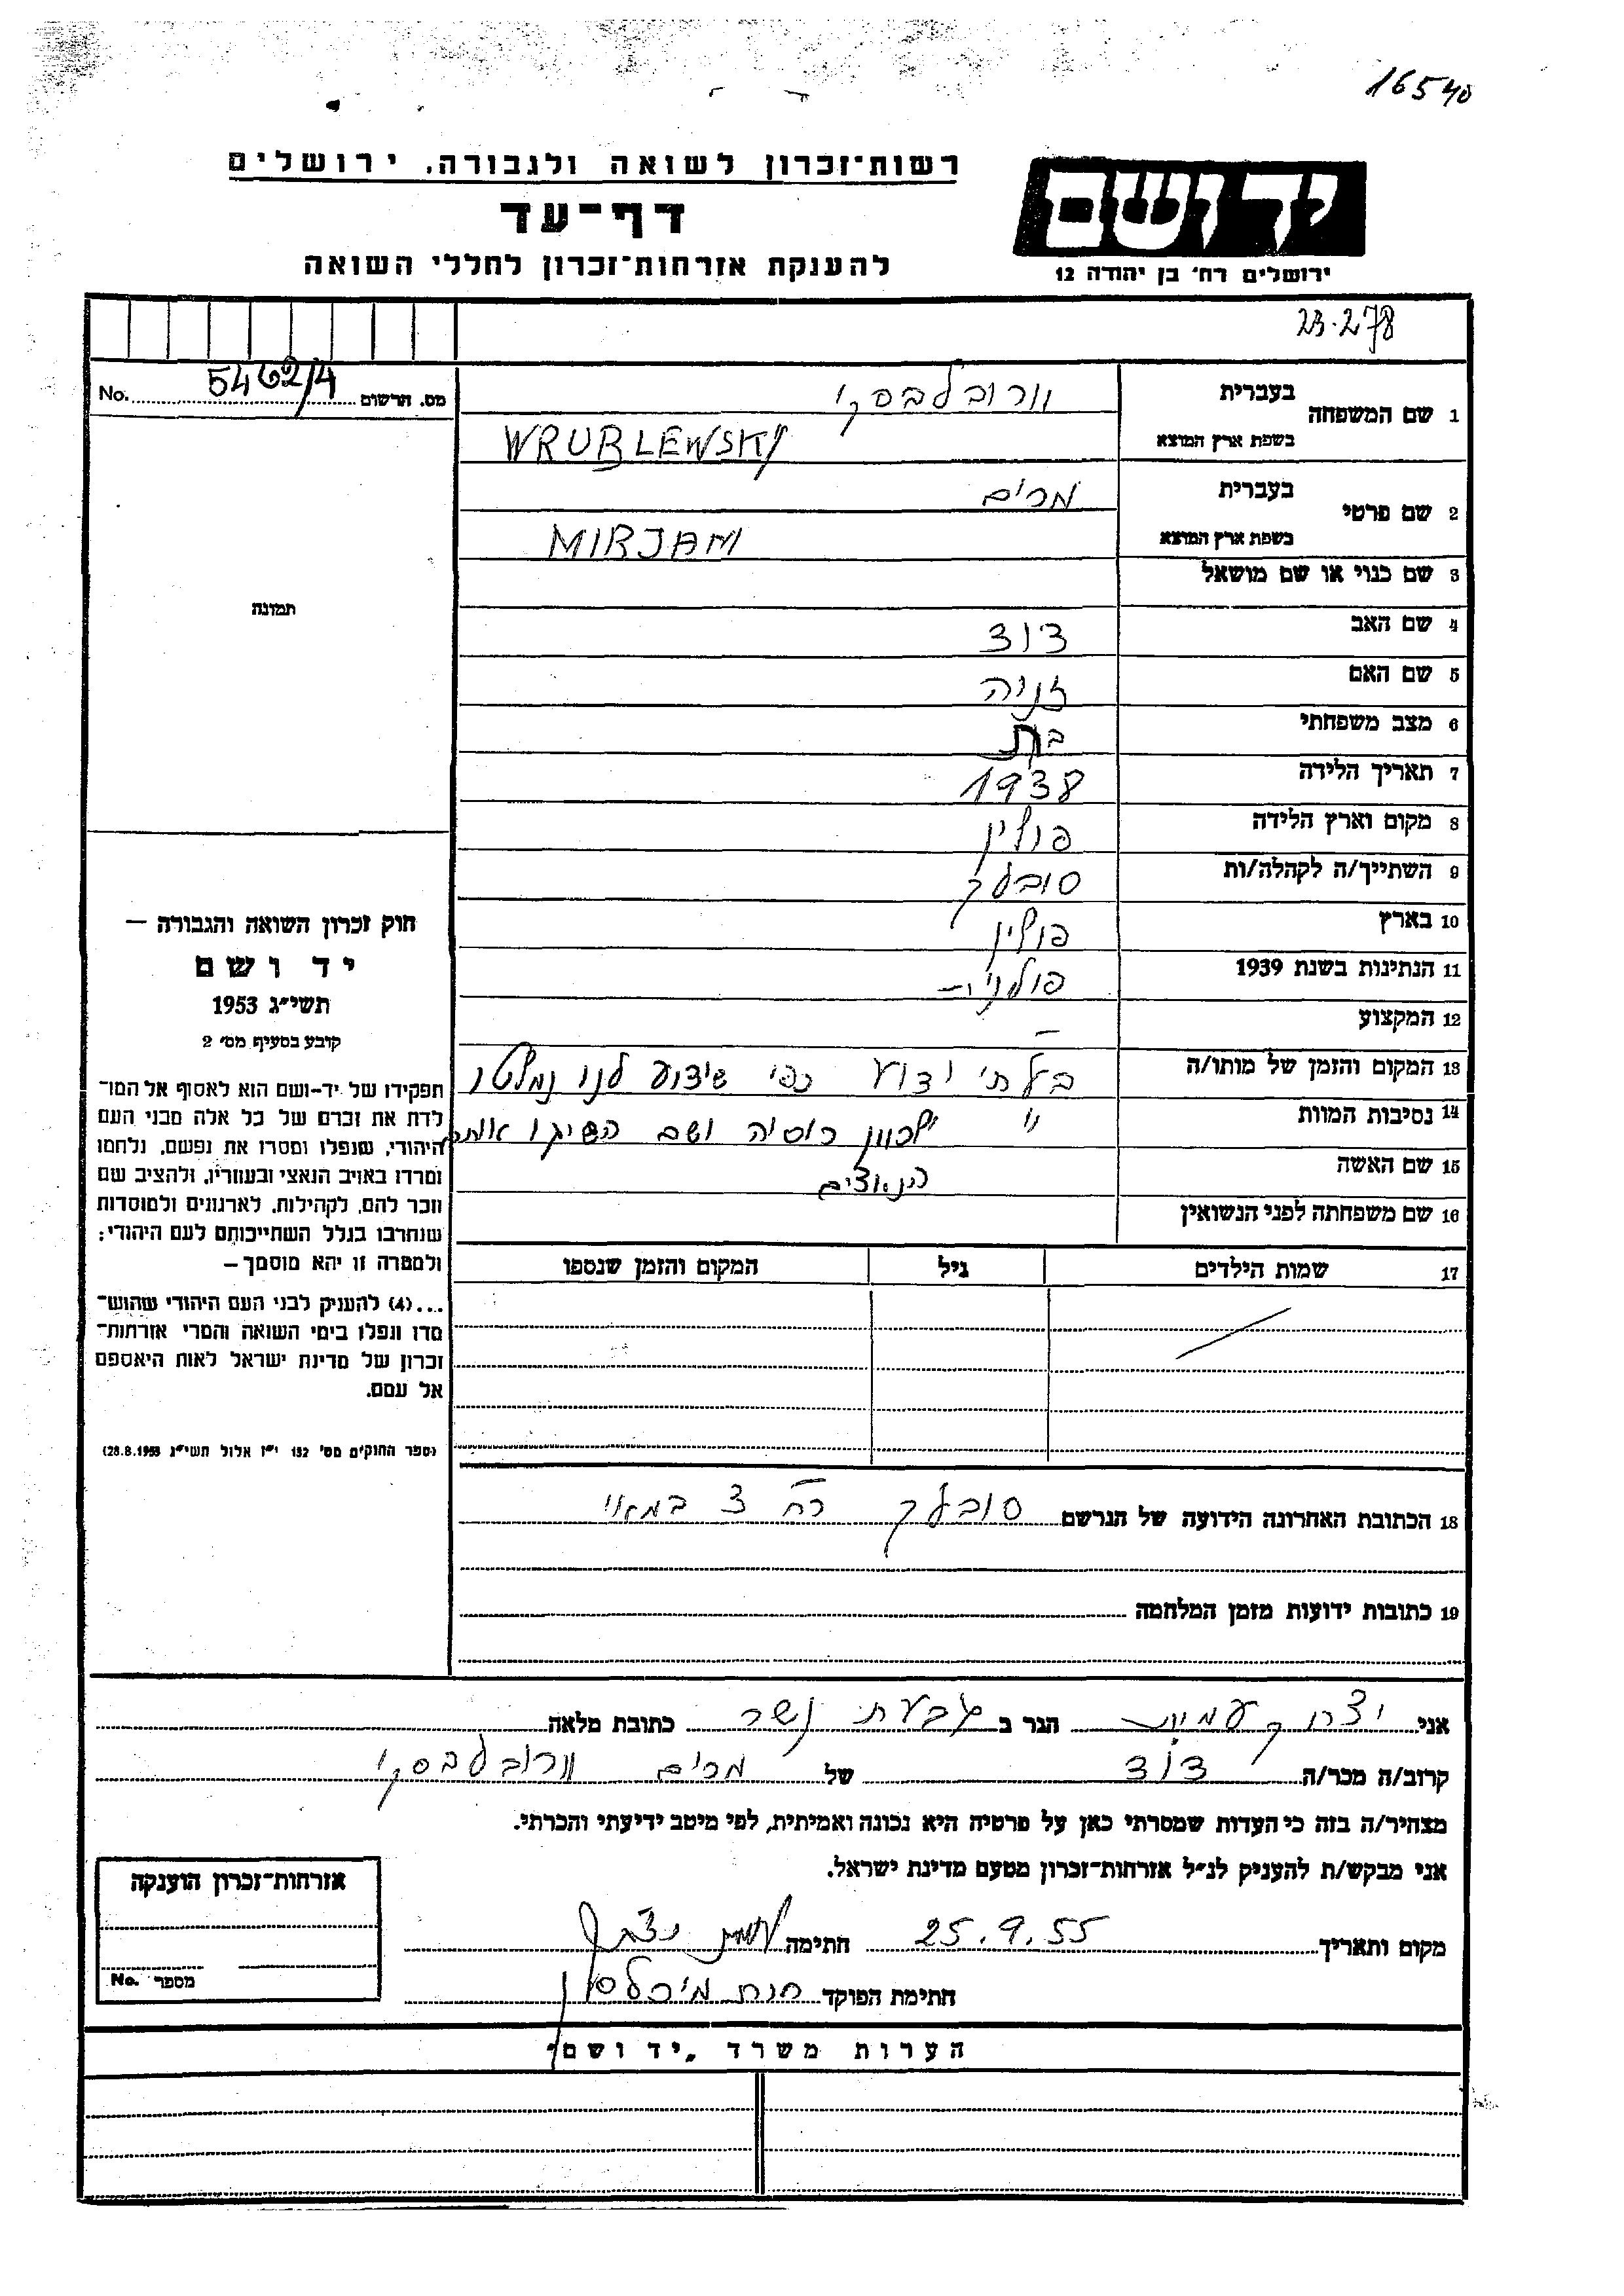 16540
רשות־זכרון לשואה ולגבורה, ירושלים
דף־עד
להענקת אזרחות־זכרון לחללי השואה
יד ושם
ירושלים רח' בן יהודה 12
23.278
No. 5462/4 מס. הרשום
1 שם המשפחה
בעברית וורובלבסקי
בשפת ארץ המוצא WRUBLEWSKY
2 שם פרטי
בעברית מרים
בשפת ארץ המוצא MIRJAM
3 שם כנוי או שם מושאל
4 שם האב דוד
5 שם האם זניה
6 מצב משפחתי בת
7 תאריך הלידה 1938
8 מקום וארץ הלידה פולין
9 השתייך/ה לקהלה/ות סובלק
10 בארץ פולין
11 הנתינות בשנת 1939 פולנית
12 המקצוע –
13 המקום והזמן של מותו/ה בלתי ידוע כפי שידוע לנו נמלטו
14 נסיבות המוות " לכוון רוסיה ושם השיגו אותם
15 שם האשה הנאצים
16 שם משפחתה לפני הנשואין
17 שמות הילדים גיל המקום והזמן שנספו
18 הכתובת האחרונה הידועה של הנרשם סובלק רח 3 במאי
19 כתובות ידועות מזמן המלחמה
תמונה
חוק זכרון השואה והגבורה –
יד ושם
תשי״ג 1953
קובע בסעיף מס' 2
תפקידו של יד-ושם הוא לאסוף אל המו־
לדת את זכרם של כל אלה מבני העם
היהודי, שנפלו ומסרו את נפשם, נלחמו
ומרדו באויב הנאצי ובעוזריו, ולהציב שם
וזכר להם, לקהילות, לארגונים ולמוסדות
שנחרבו בגלל השתייכותם לעם היהודי;
ולמטרה זו יהא מוסמך –
...(4) להעניק לבני העם היהודי שהוש־
מדו ונפלו בימי השואה והמרי אזרחות־
זכרון של מדינת ישראל לאות היאספם
אל עמם.
(ספר החוקים מס' 132 י״ז אלול תשי״ג 28.8.1953)
אני הגר ב גבעת נשר כתובת מלאה
קרוב/ה מכר/ה דוד של מרים וורובלבסקי
מצהיר/ה בזה כי העדות שמסרתי כאן על פרטיה היא נכונה ואמיתית, לפי מיטב ידיעתי והכרתי.
אני מבקש/ת להעניק לנ״ל אזרחות־זכרון מטעם מדינת ישראל.
מקום ותאריך 25.9.55 חתימה
חתימת הפוקד חנה מיכלסון
אזרחות־זכרון הוענקה
מספר No.
הערות משרד „יד ושם"